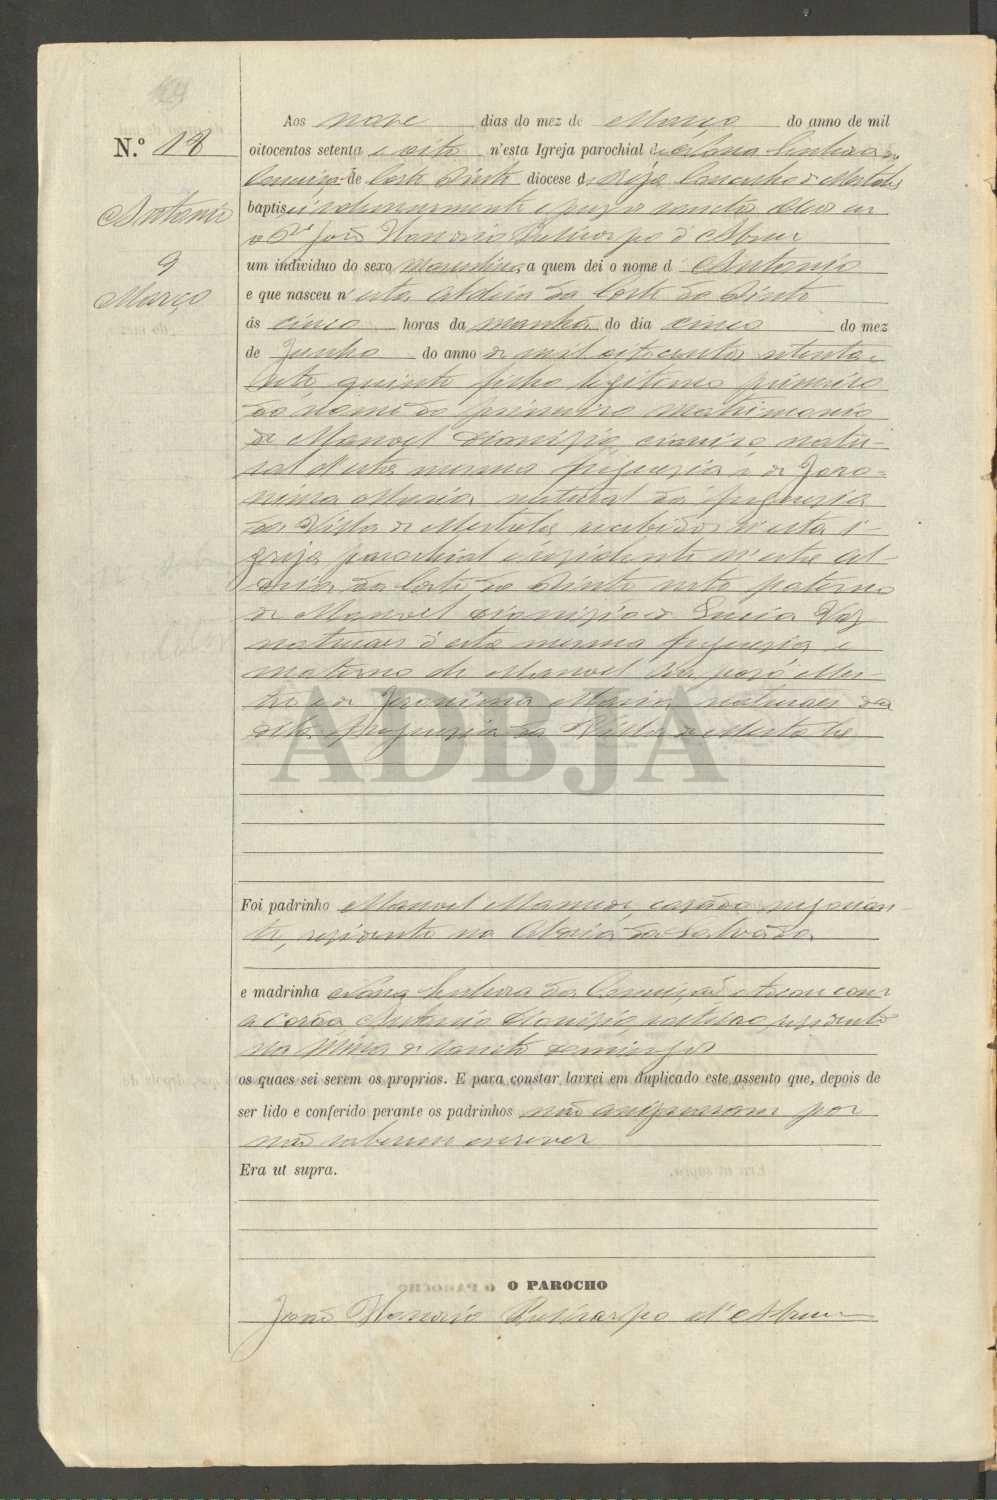 N.º 18
Antonio
9
Março
Aos nove dias do mez de Março do anno de mil
oitocentos setenta e oito n'esta Igreja parochial de Nossa Senhora da
Conceição de Corte do Pinto diocese de Beja Concelho de Mertola
baptisei solemnemente e puz os sanctos oleos eu
o P.re João Honorio Policarpo d'Abreu
um individuo do sexo masculino, a quem dei o nome d Antonio
e que nasceu n'esta Aldeia da Corte do Pinto
ás cinco horas da manhã do dia cinco do mez
de Junho do anno de mil oitocentos setenta e
sete, quinto filho legitimo primeiro
do nome do primeiro matrimonio
de Manoel Dionizio, natu-
ral d'esta mesma freguezia e de Jero-
nima Maria natural da freguezia
da Villa de Mertola recebidos n'esta I-
greja parochial e rezidentes n'esta Al-
deia da Corte do Pinto neto paterno
de Manoel Dionizio e Luzia Vaz
naturaes d'esta mesma freguezia e
materno de Manoel
e de Jeronima Maria naturaes da
dita freguezia da Villa de Mertola
ADBJA
Foi padrinho Manoel casado, negocian-
te, rezidente na Aldeia da
e madrinha Nossa Senhora da Conceição e tocou com
a corôa Antonio Dionizio, solteiro, rezidente
na Mina de Sancto Domingos
os quaes sei serem os proprios. E para constar lavrei em duplicado este assento que, depois de
ser lido e conferido perante os padrinhos não assignaram por
não saberem escrever
Era ut supra.
O PAROCHO
João Honorio Policarpo d'Abreu